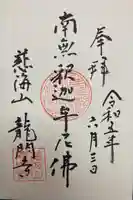 奉拝
令和五年六月三日
南無釈迦牟尼佛
慈海山
龍門寺